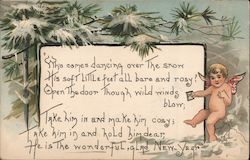 Who comes dancing over the snow
His soft little feet all bare and rosy;
Open the door, though wild winds
blow,
Take him in and make him cosy;
Take him in and hold him dear,
He is the wonderful, glad New Year